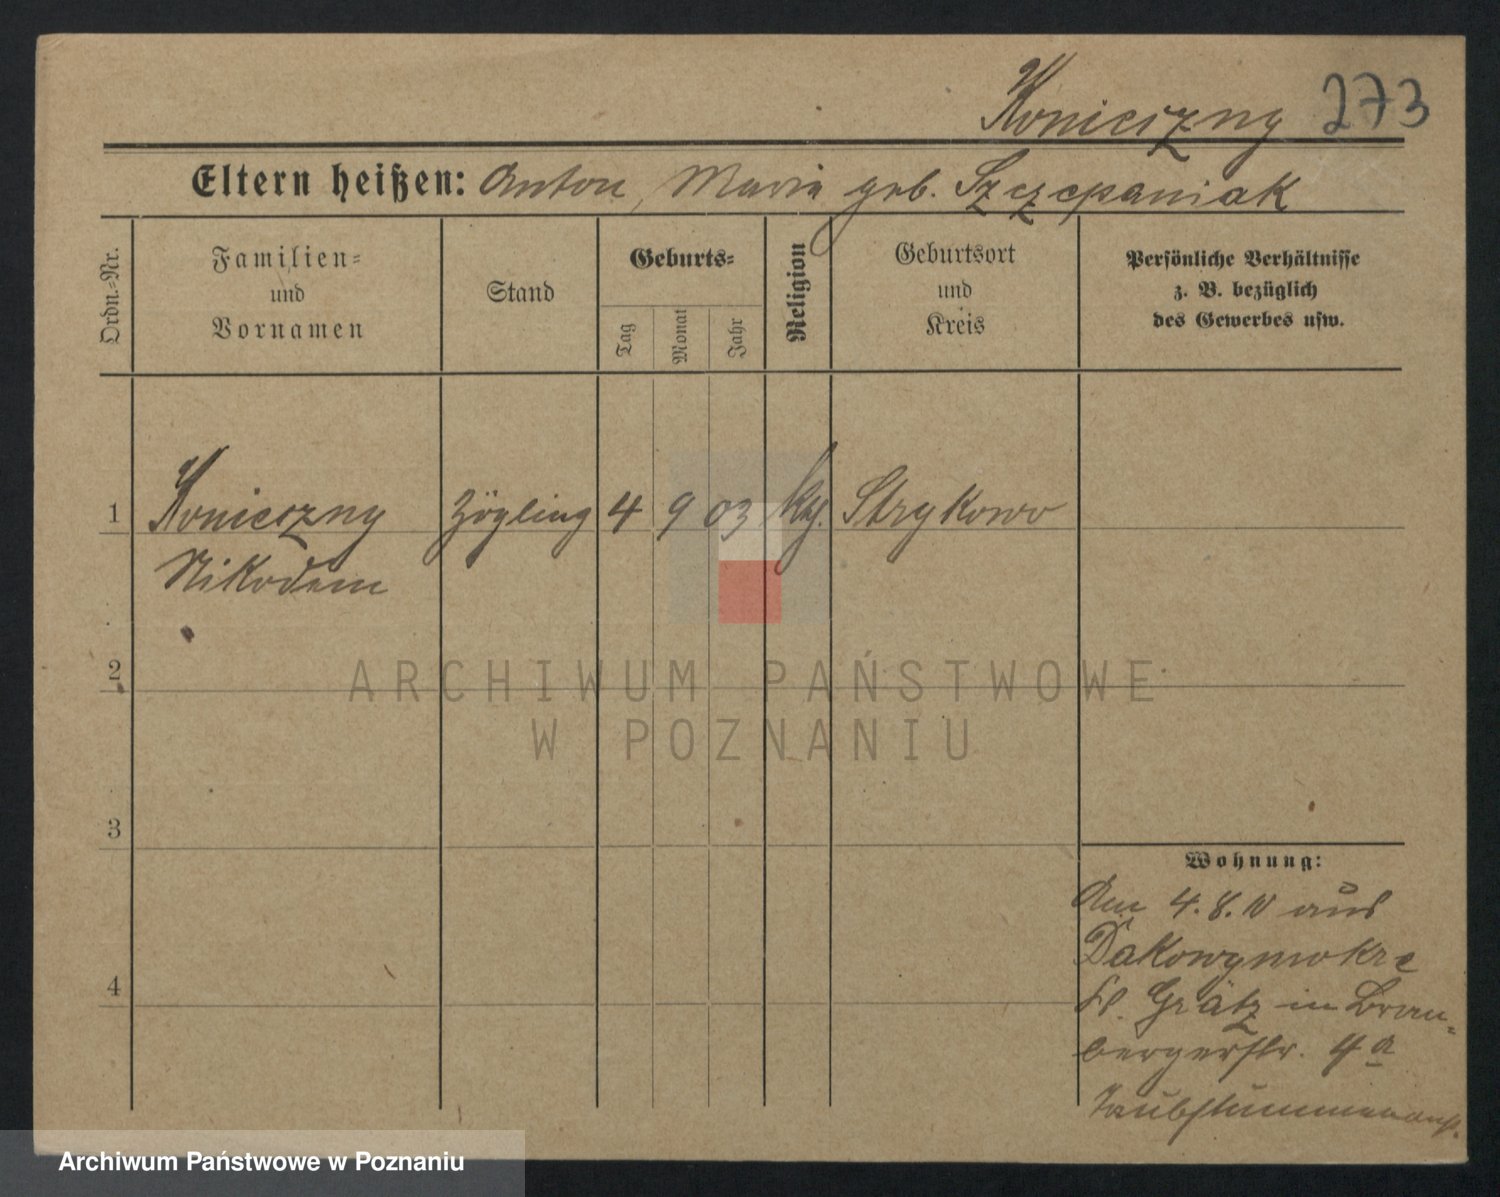 Konieczny 273
Eltern heißen: Anton, Maria geb. Szczepaniak
Ordn.=Nr.
Familien=
und
Vornamen
Stand
Geburts=
Tag
Monat
Jahr
Religion
Geburtsort
und
Kreis
Persönliche Verhältnisse
z. B. bezüglich
des Gewerbes usw.
1 Konieczny Zögling 4 9 03 kth. Strykowo
Nikodem
2
ARCHIWUM PAŃSTWOWE
W POZNANIU
3
Wohnung:
Am 4.8.10 aus
Dakowymokre
Grätz in
bergerstr. 4a
Taubstummenanst.
4
Archiwum Państwowe w Poznaniu